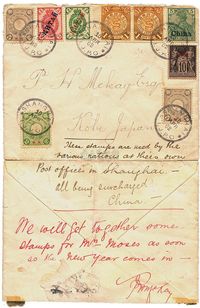 China
P. H. McKay Esq
Kobe Japan
These stamps are used by the
various nations at their own
Post offices in Shanghai —
all being surcharged
China —
We will get together some
stamps for Mrs Moses as soon
as the New Year comes in —